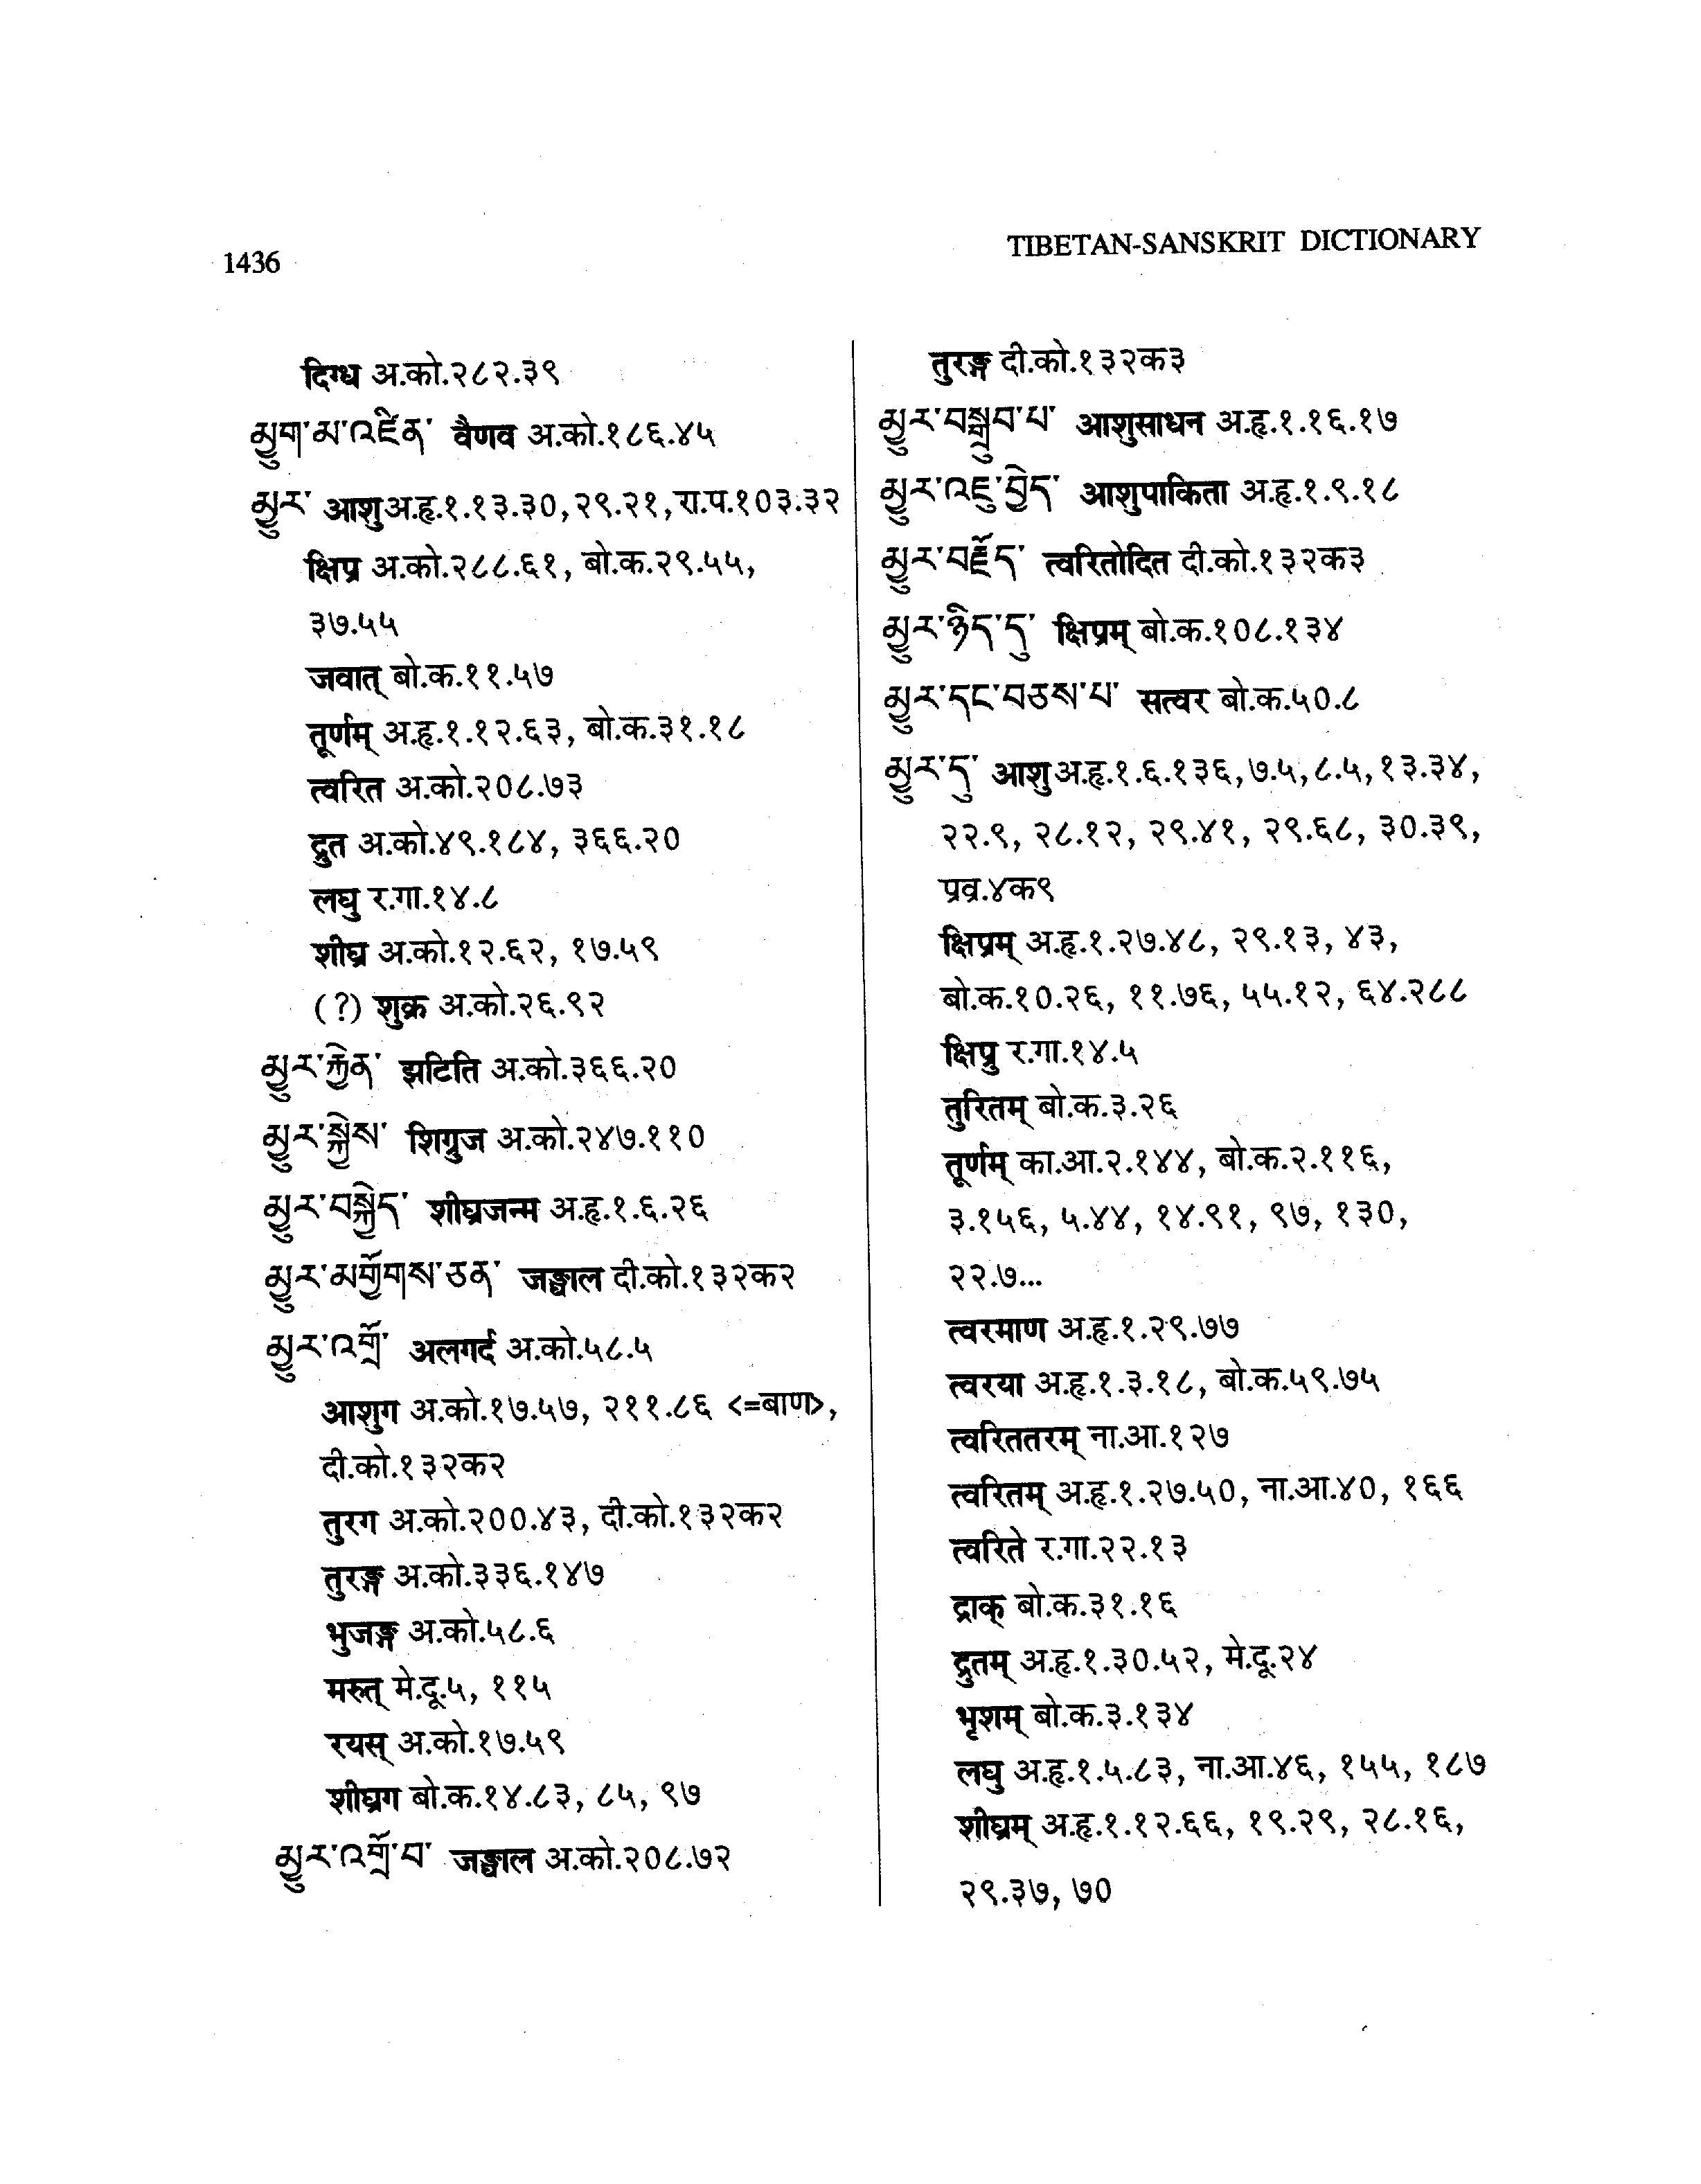 1436
TIBETAN-SANSKRIT DICTIONARY
दिग्ध अ.को.२८२.३९
མྱུག་མ་འཛིན་ वैणव अ.को.१८६.४५
མྱུར་ आशु अ.हृ.१.१३.३०,२९.२१,रा.प.१०३.३२
क्षिप्र अ.को.२८८.६१, बो.क.२९.५५,
३७.५५
जवात् बो.क.११.५७
तूर्णम् अ.हृ.१.१२.६३, बो.क.३१.१८
त्वरित अ.को.२०८.७३
द्रुत अ.को.४९.१८४, ३६६.२०
लघु र.गा.१४.८
शीघ्र अ.को.१२.६२, १७.५९
(?) शुक्र अ.को.२६.९२
མྱུར་རྐྱེན་ झटिति अ.को.३६६.२०
མྱུར་སྐྱེས་ शिग्रुज अ.को.२४७.११०
མྱུར་བསྐྱེད་ शीघ्रजन्म अ.हृ.१.६.२६
མྱུར་མགྱོགས་ཅན་ जङ्घाल दी.को.१३२क२
མྱུར་འགྲོ་ अलगर्द अ.को.५८.५
आशुग अ.को.१७.५७, २११.८६ <=बाण>,
दी.को.१३२क२
तुरग अ.को.२००.४३, दी.को.१३२क२
तुरङ्ग अ.को.३३६.१४७
भुजङ्ग अ.को.५८.६
मरुत् मे.दू.५, ११५
रयस् अ.को.१७.५९
शीघ्रग बो.क.१४.८३, ८५, ९७
མྱུར་འགྲོ་བ་ जङ्घाल अ.को.२०८.७२
तुरङ्ग दी.को.१३२क३
མྱུར་བསྒྲུབ་པ་ आशुसाधन अ.हृ.१.१६.१७
མྱུར་འཇུ་བྱེད་ आशुपाकिता अ.हृ.१.९.१८
མྱུར་བརྗོད་ त्वरितोदित दी.को.१३२क३
མྱུར་ཉིད་དུ་ क्षिप्रम् बो.क.१०८.१३४
མྱུར་དང་བཅས་པ་ सत्वर बो.क.५०.८
མྱུར་དུ་ आशु अ.हृ.१.६.१३६,७.५,८.५,१३.३४,
२२.९, २८.१२, २९.४१, २९.६८, ३०.३९,
प्रव्र.४क९
क्षिप्रम् अ.हृ.१.२७.४८, २९.१३, ४३,
बो.क.१०.२६, ११.७६, ५५.१२, ६४.२८८
क्षिप्रु र.गा.१४.५
तुरितम् बो.क.३.२६
तूर्णम् का.आ.२.१४४, बो.क.२.११६,
३.१५६, ५.४४, १४.९१, ९७, १३०,
२२.७...
त्वरमाण अ.हृ.१.२९.७७
त्वरया अ.हृ.१.३.१८, बो.क.५९.७५
त्वरिततरम् ना.आ.१२७
त्वरितम् अ.हृ.१.२७.५०, ना.आ.४०, १६६
त्वरिते र.गा.२२.१३
द्राक् बो.क.३१.१६
द्रुतम् अ.हृ.१.३०.५२, मे.दू.२४
भृशम् बो.क.३.१३४
लघु अ.हृ.१.५.८३, ना.आ.४६, १५५, १८७
शीघ्रम् अ.हृ.१.१२.६६, १९.२९, २८.१६,
२९.३७, ७०